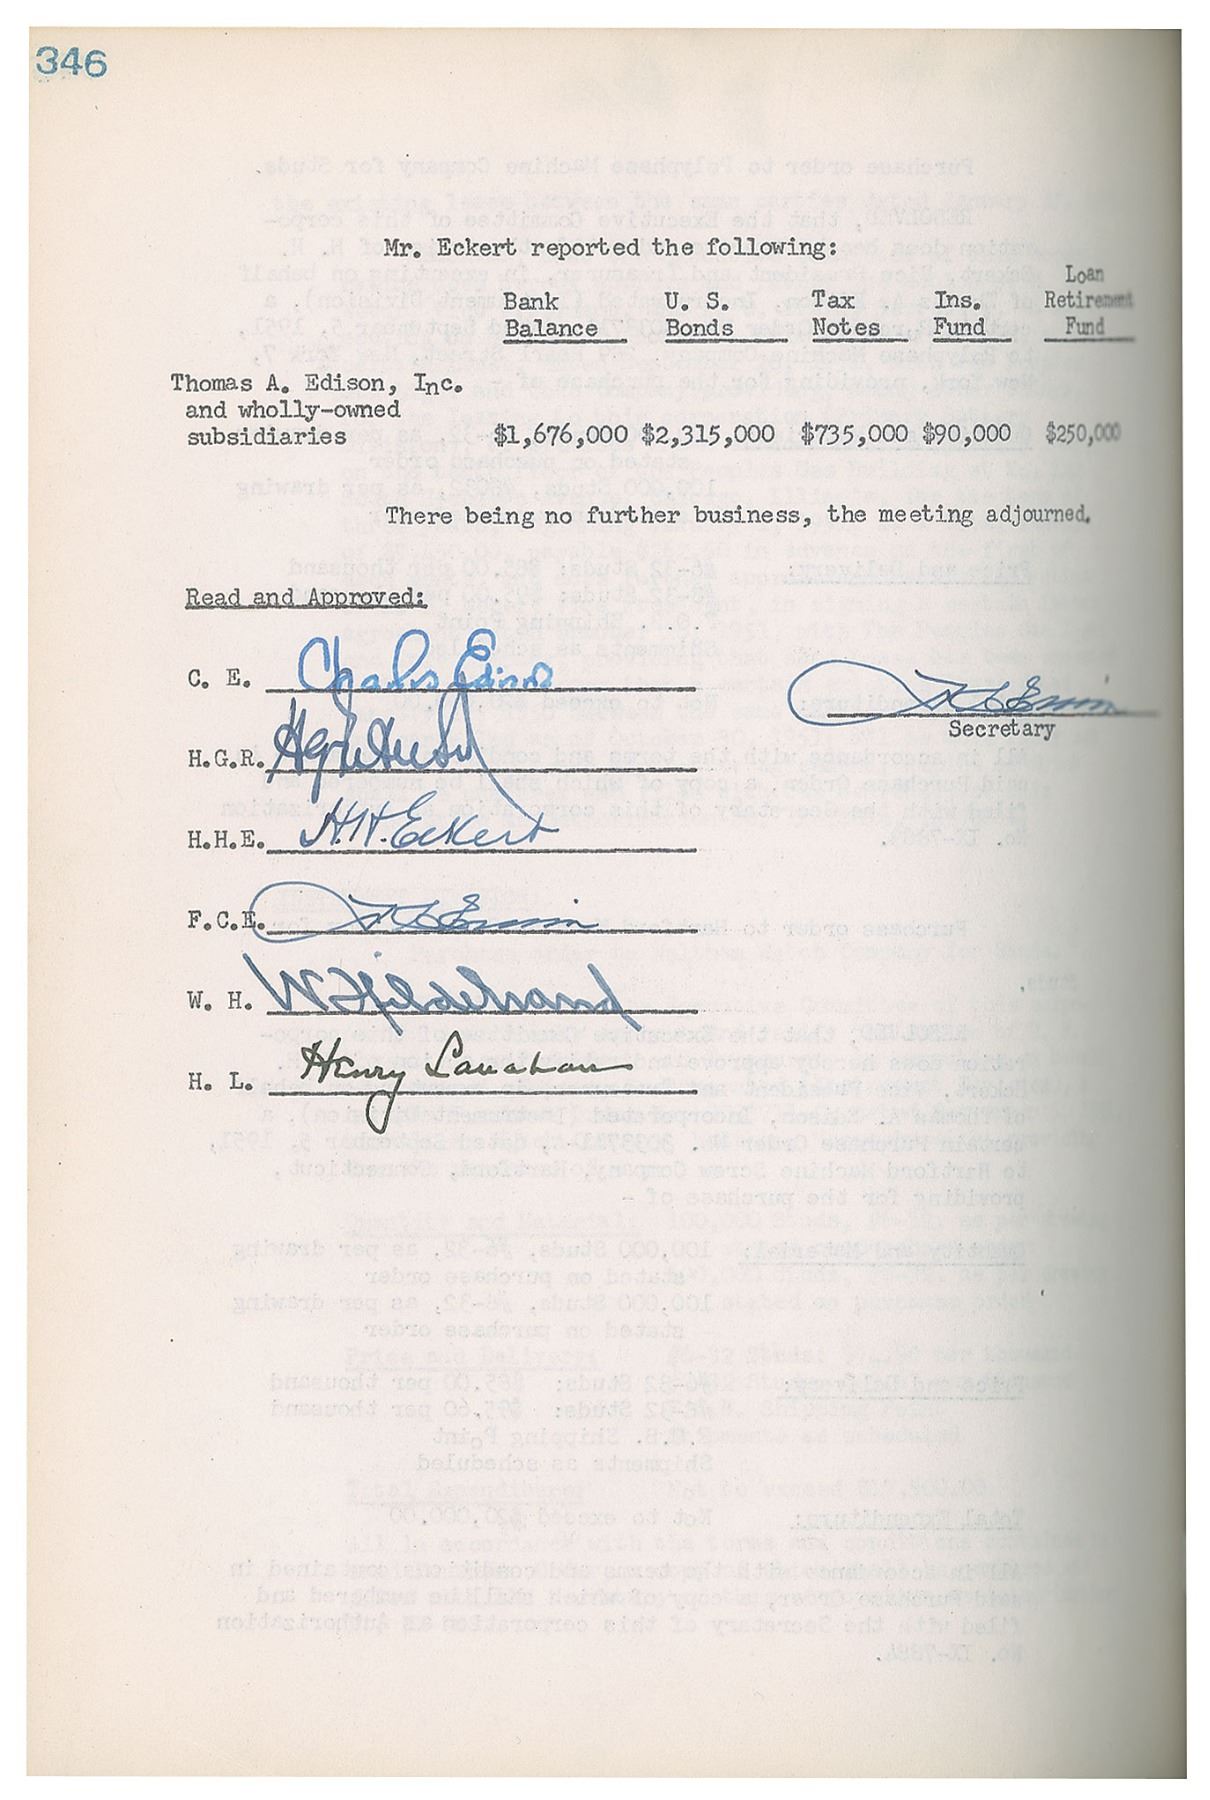 346
Mr. Eckert reported the following:
Loan
Bank U. S. Tax Ins. Retirement
Balance Bonds Notes Fund Fund
Thomas A. Edison, Inc.
and wholly-owned
subsidiaries $1,676,000 $2,315,000 $735,000 $90,000 $250,000
There being no further business, the meeting adjourned.
Read and Approved:
C. E. Charles Edison
Secretary
H.G.R.
H.H.E. H.H. Eckert
F.C.E.
W. H. W Hildebrand
H. L. Henry Lanahan